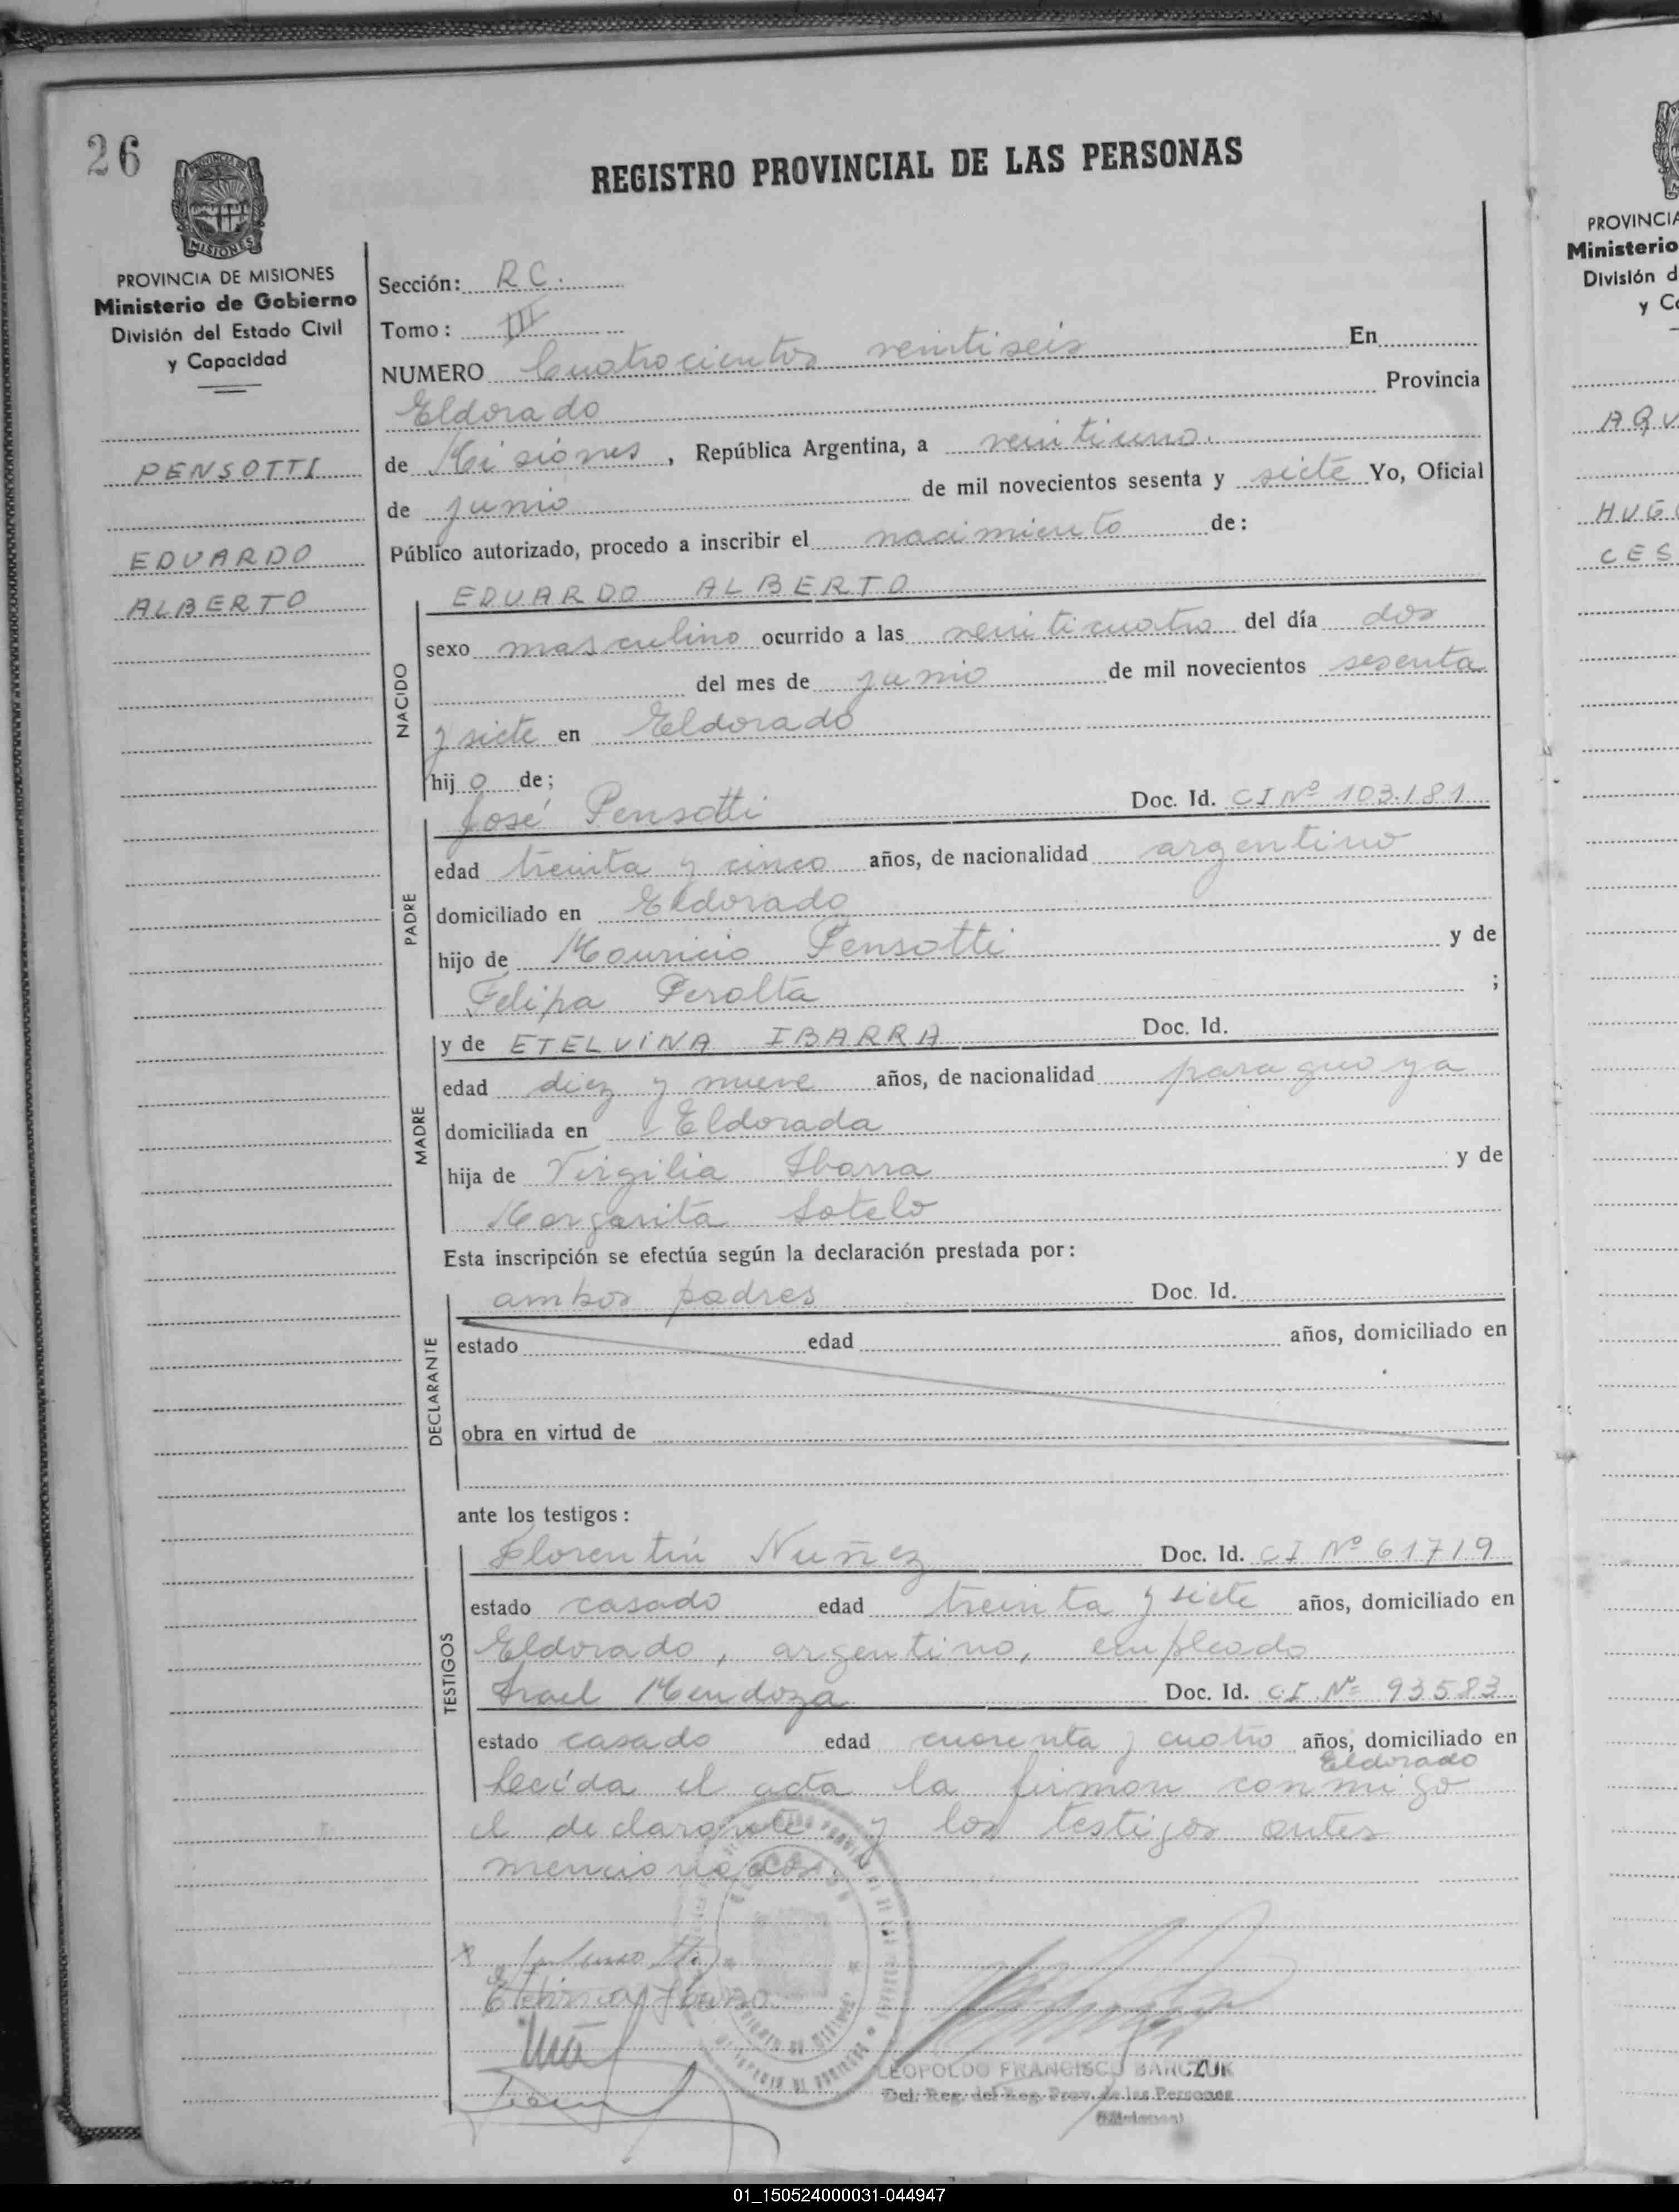 26
REGISTRO PROVINCIAL DE LAS PERSONAS
MISIONES
PROVINCIA DE MISIONES
Ministerio de Gobierno
División del Estado Civil
y Capacidad
PENSOTTI
EDUARDO
ALBERTO
Sección: R C.
Tomo: III
NUMERO Cuatrocientos veintiseis En
Eldorado Provincia
de Misiones, República Argentina, a veintiuno.
de junio de mil novecientos sesenta y siete Yo, Oficial
Público autorizado, procedo a inscribir el nacimiento de:
NACIDO
EDUARDO ALBERTO
sexo masculino ocurrido a las veinticuatro del día dos
del mes de junio de mil novecientos sesenta
y siete en Eldorado
hijo de;
PADRE
José Pensotti Doc. Id. CI Nº 103.181
edad treinta y cinco años, de nacionalidad argentino
domiciliado en Eldorado
hijo de Mauricio Pensotti y de
Felipa Peralta ;
MADRE
y de ETELVINA IBARRA Doc. Id.
edad diez y nueve años, de nacionalidad paraguaya
domiciliada en Eldorada
hija de Virgilia Ibarra y de
Margarita Sotelo
Esta inscripción se efectúa según la declaración prestada por:
DECLARANTE
ambos padres Doc. Id.
estado edad años, domiciliado en
obra en virtud de
ante los testigos:
TESTIGOS
Florentín Nuñez Doc. Id. CI Nº 61719
estado casado edad treinta y siete años, domiciliado en
Eldorado, argentino, empleado
Israel Mendoza Doc. Id. CI Nº 93583
estado casado edad cuarenta y cuatro años, domiciliado en
Eldorado
Leída el acta la firman conmigo
el declarante y los testigos antes
mencionados.
Etelvina Ibarra
LEOPOLDO FRANCISCO BARCZUK
Del. Reg. del Reg. Prov. de las Personas
(Misiones)
PROVINCIA
Ministerio
División d
HUG
CES
01_150524000031-044947